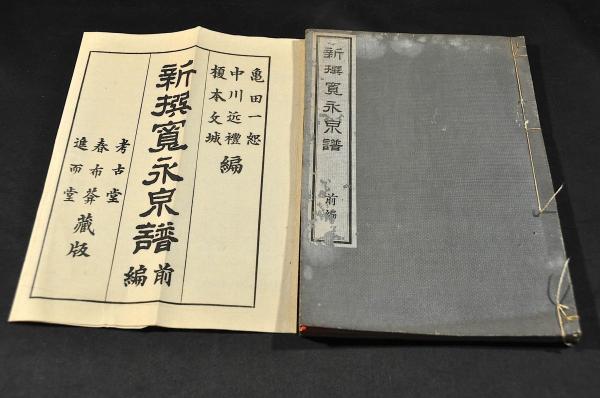 亀田一恕
中川近禮
榎本文城
編
新撰寛永泉譜
前編
考古堂
春布莽
進而堂
藏版
新撰寛永泉譜
前編